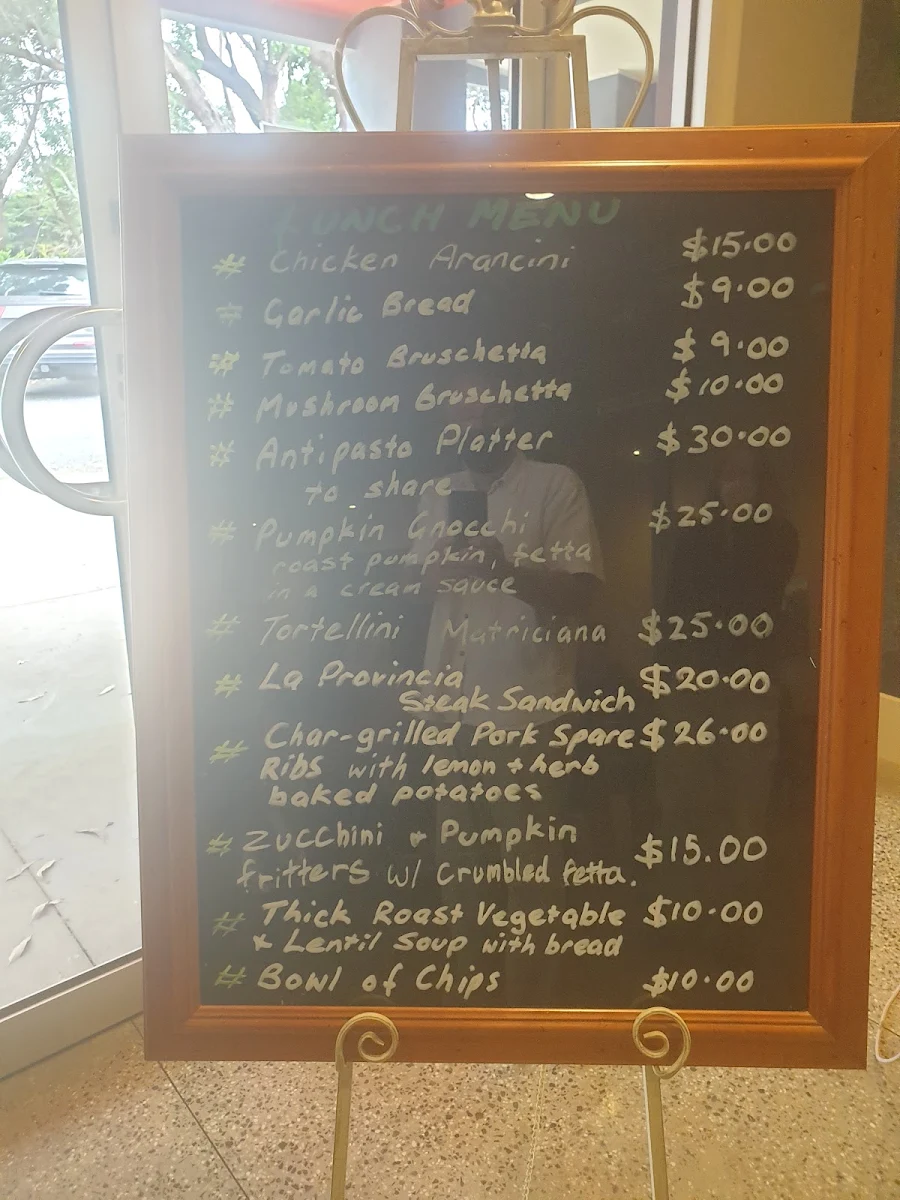 LUNCH MENU
# Chicken Arancini $15.00
# Garlic Bread $9.00
# Tomato Bruschetta $9.00
# Mushroom Bruschetta $10.00
# Antipasto Platter $30.00
to share
# Pumpkin Gnocchi $25.00
roast pumpkin, fetta
in a cream sauce
# Tortellini Matriciana $25.00
# La Provincia $20.00
Steak Sandwich
# Char-grilled Pork Spare $26.00
Ribs with lemon + herb
baked potatoes
# Zucchini + Pumpkin
fritters w/ Crumbled fetta. $15.00
# Thick Roast Vegetable $10.00
+ Lentil Soup with bread
# Bowl of Chips $10.00